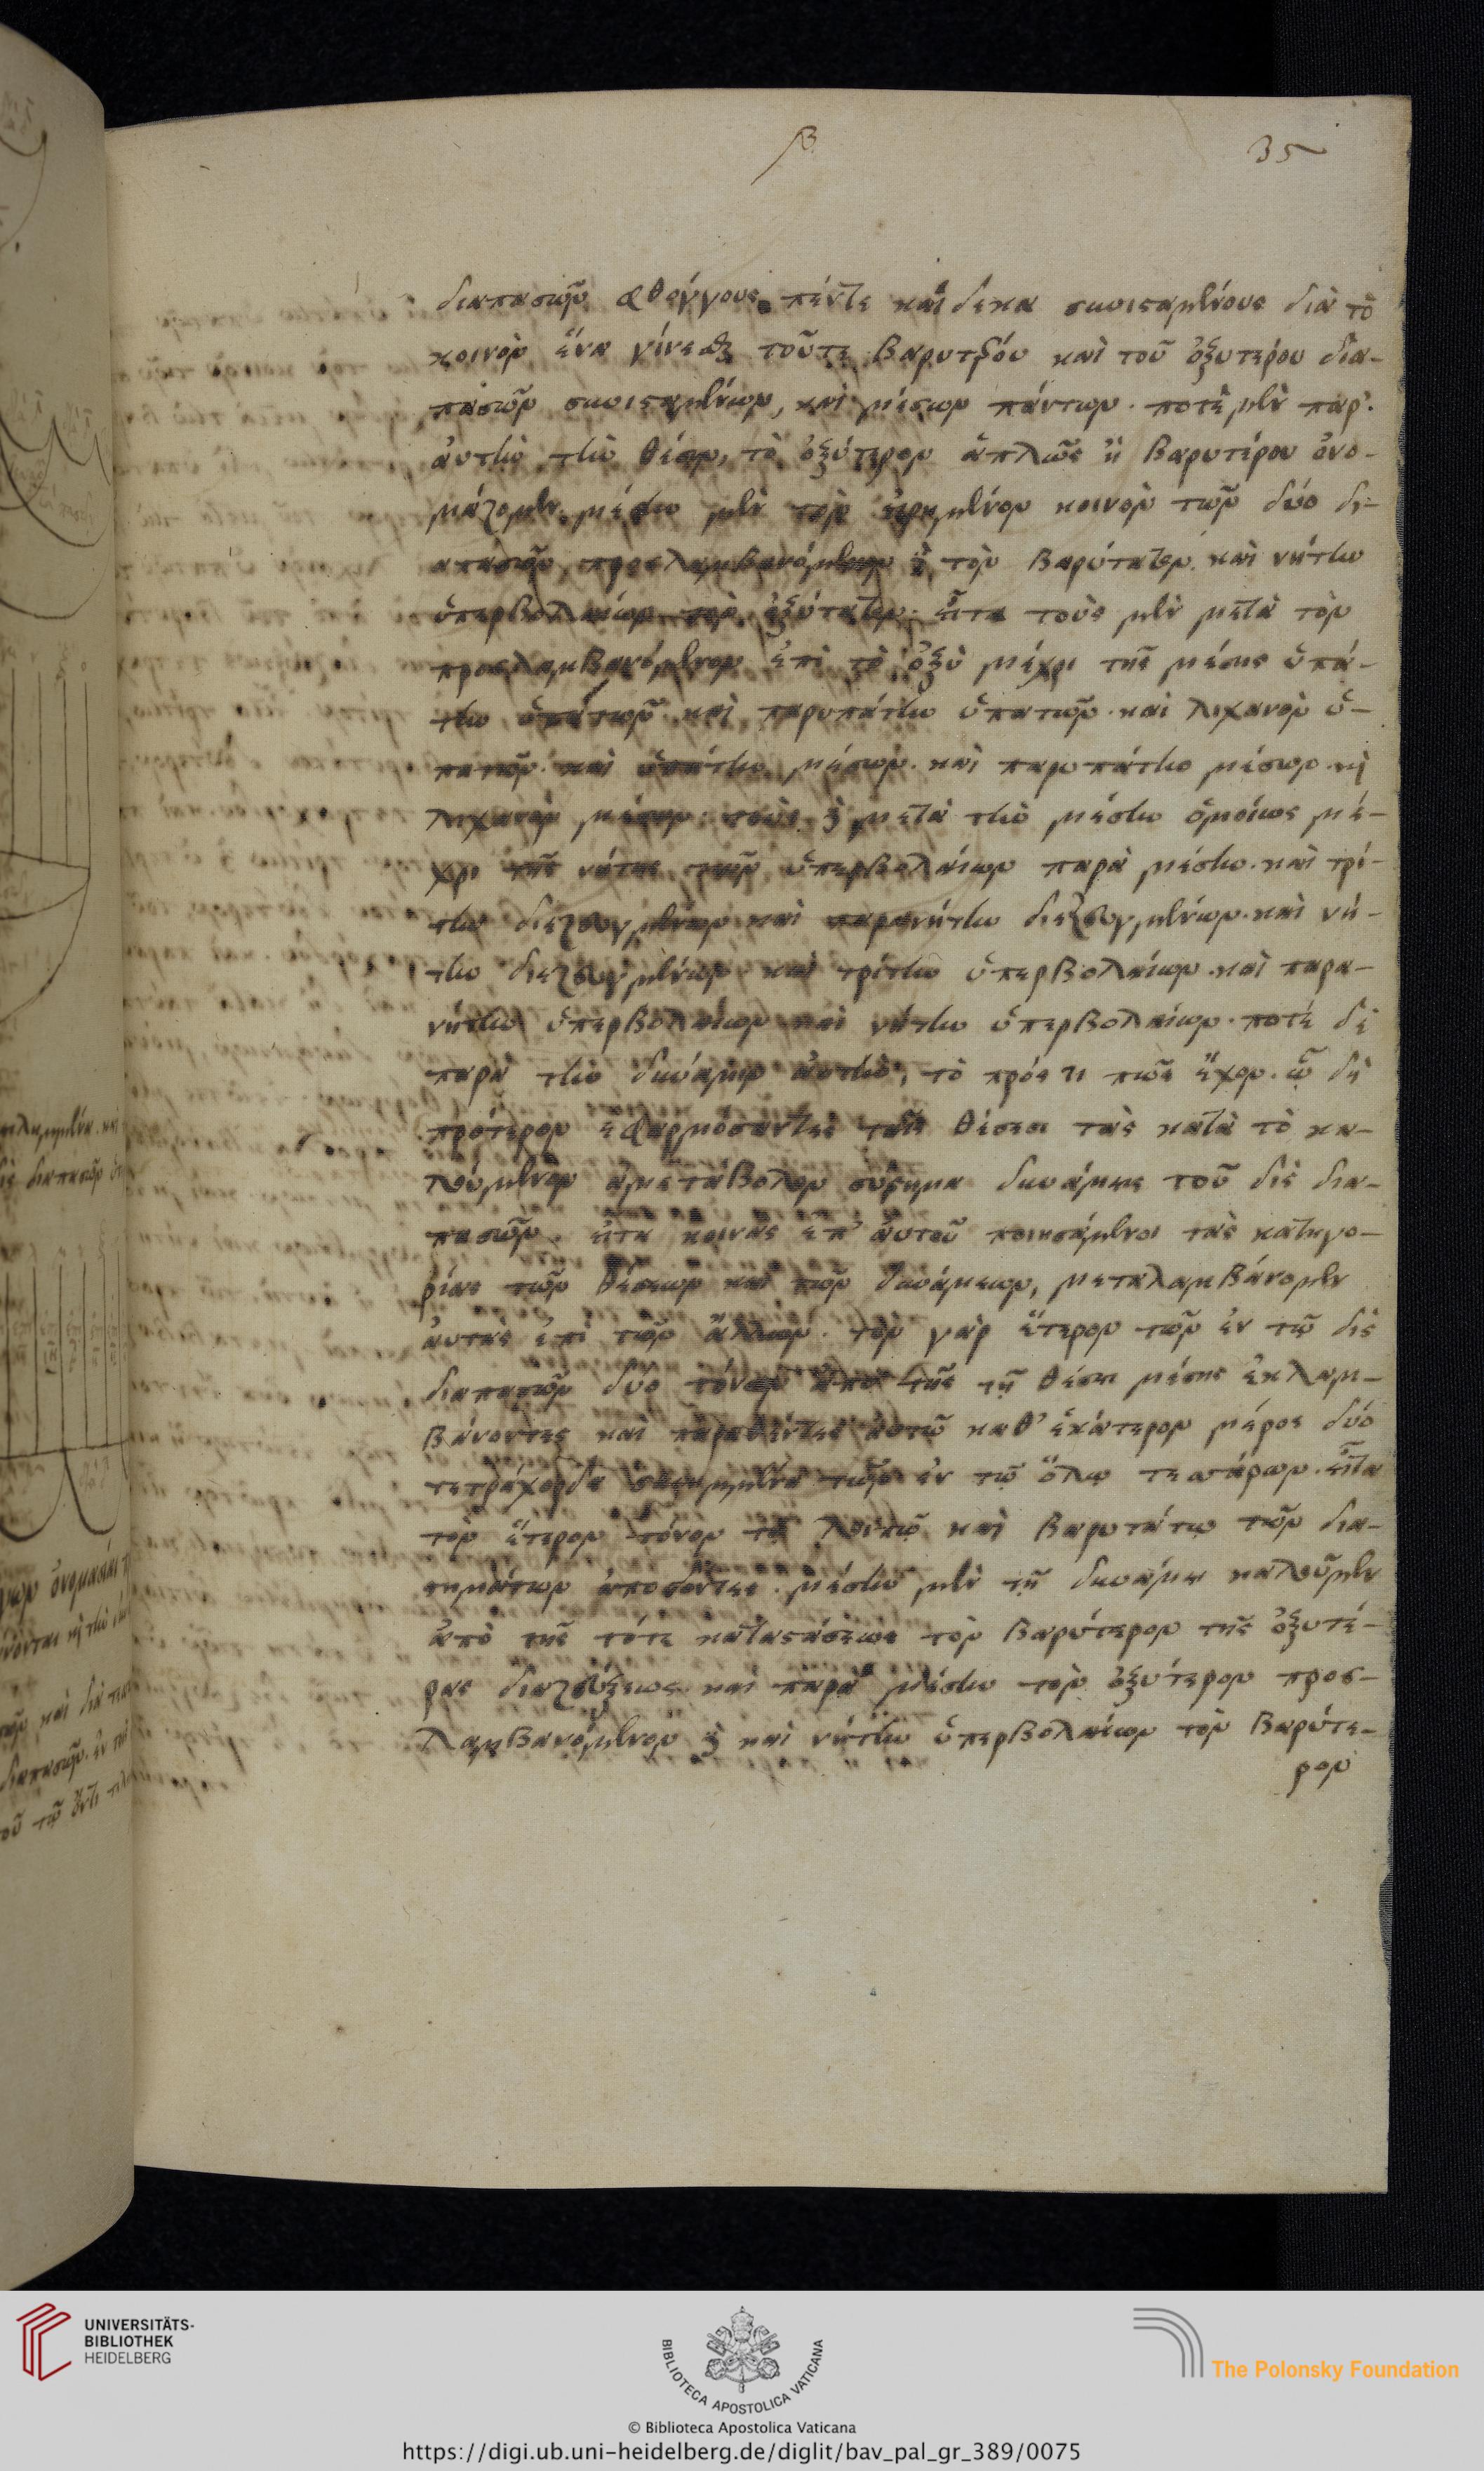 β
35
διαπασῶν φθόγγους πέντε καὶ δεκα συνισαμένους διὰ τὸ
κοινὸν ἕνα γίνεσθαι τοῦτε βαρυτέρου καὶ τοῦ ὀξυτέρου δια-
πασῶν συνισαμένων, καὶ μέσων πάντων. ποτὲ μὲν παρ'
ἀυτὴν τὴν θέσιν, τὸ ὀξύτερον ἁπλῶς ἢ βαρυτέρου ὀνο-
μάζομεν. μέσην μὲν τὸν εἰρημένον κοινὸν τῶν δύο δι-
απασῶν, προσλαμβανόμενον δὲ τὸν βαρύτατον. καὶ νήτην
ὑπερβολαίων τὸν ὀξύτατον. εἶτα τοὺς μὲν μετὰ τὸν
προσλαμβανόμενον ἐπὶ τὸ ὀξὺ μέχρι τῆς μέσης ὑπά-
την ὑπάτων καὶ παρυπάτην ὑπατῶν. καὶ λιχανὸν ὑ-
πατῶν. καὶ ὑπάτην μέσων. καὶ παρυπάτην μέσων. καὶ
λιχανὸν μέσων. τοὺς δὲ μετὰ τὴν μέσην ὁμοίως μέ-
χρι τῆς νήτης τῶν ὑπερβολαίων παρὰ μέσην. καὶ τρί-
την διεζευγμένων καὶ παρανήτην διεζευγμένων. καὶ νή-
την διεζευγμένων καὶ τρίτην ὑπερβολαίων. καὶ παρα-
νήτην ὑπερβολαίων καὶ νήτην ὑπερβολαίων. ποτέ δὲ
παρὰ τὴν δυνάμιν ἀυτὴν, τὸ πρός τι πῶς ἔχον. ᾧ δὴ
πρότερον ἐφαρμόσαντες ταῖς θέσεσι τὰς κατὰ τὸ κα-
λούμενον ἀμετάβολον σύστημα δυνάμεις τοῦ δὶς δια-
πασῶν. εἶτα κοινὰς ἐπ' ἀυτοῦ ποιησάμενοι τὰς κατηγο-
ρίας τῶν θέσεων καὶ τῶν δυνάμεων, μεταλαμβάνομεν
ἀυτὰς ἐπὶ τῶν ἄλλων. τὸν γὰρ ἕτερον τῶν ἐν τῷ δὶς
διαπασῶν δύο τόνων ἀπὸ τῆς τῇ θέσει μέσης ἐκλαμ-
βάνοντες καὶ παραθέντες ἀυτῷ καθ' ἑκάτερον μέρος δύο
τετράχορδα συνημμένα τῶν ἐν τῷ ὅλῳ τεσσάρων. εἶτα
τὸν ἕτερον τόνον τῷ λοιπῷ καὶ βαρυτάτῳ τῶν δια-
στημάτων ἀποδόντες. μέσην μὲν τῇ δυνάμει καλοῦμεν
ἀπὸ τῆς τότε καταστάσεως τὸν βαρύτερον τῆς ὀξυτέ-
ρας διαζεύξεως καὶ παρὰ μέσην τὸν ὀξύτερον προσ-
λαμβανόμενον δὲ καὶ νήτην ὑπερβολαίων τὸν βαρύτε-
ρον
UNIVERSITÄTS-
BIBLIOTHEK
HEIDELBERG
BIBLIOTECA APOSTOLICA VATICANA
The Polonsky Foundation
© Biblioteca Apostolica Vaticana
https://digi.ub.uni-heidelberg.de/diglit/bav_pal_gr_389/0075